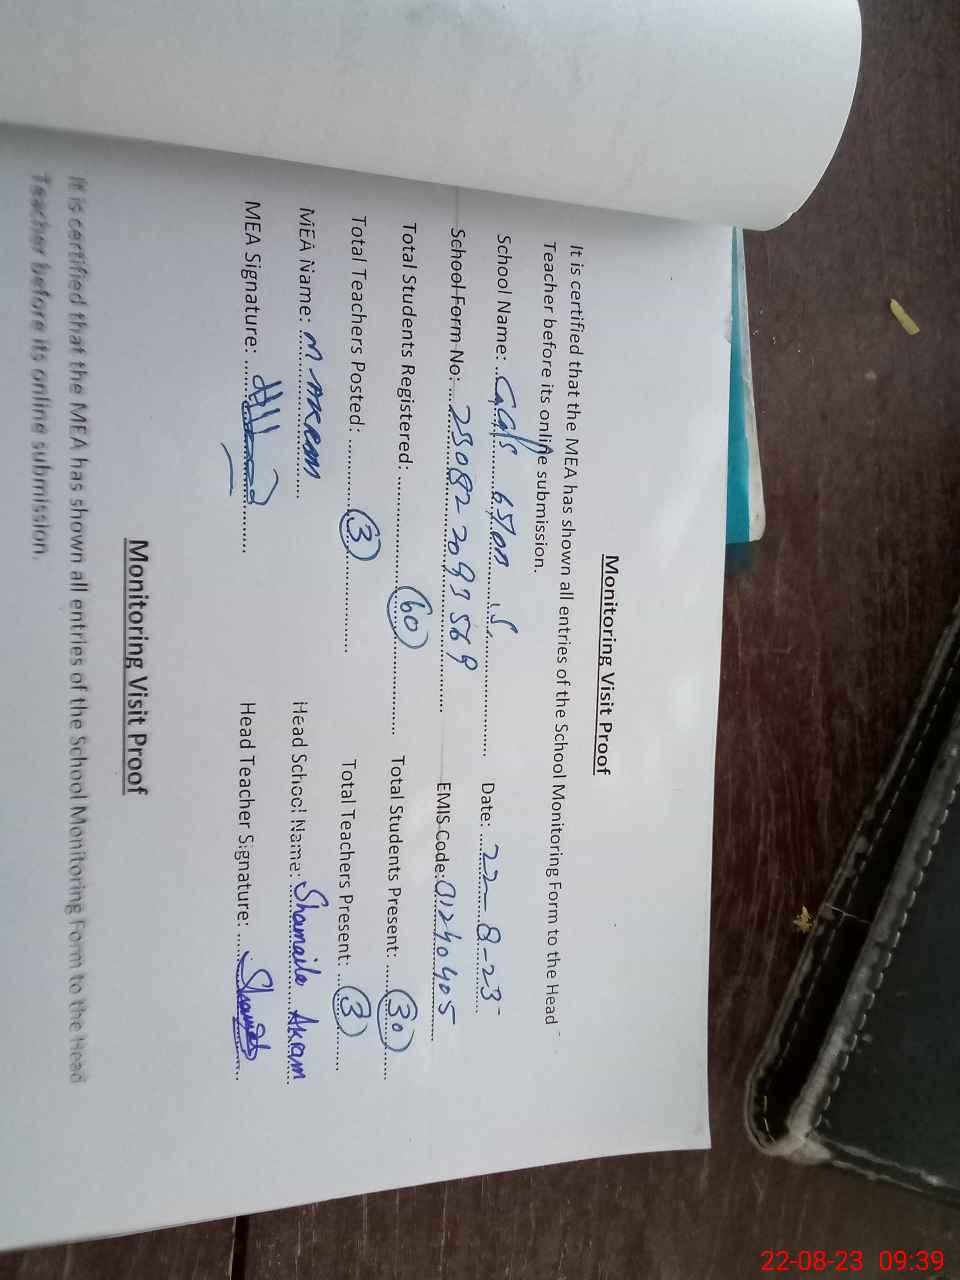 Monitoring Visit Proof
It is certified that the MEA has shown all entries of the School Monitoring Form to the Head
Teacher before its online submission.
School Name: Date: 22-8-23
School Form No: EMIS Code:
Total Students Registered: 60 Total Students Present: 30
Total Teachers Posted: 3 Total Teachers Present: 3
MEA Name: M Akram Head School Name: Shamaila Akram
MEA Signature: Head Teacher Signature:
Monitoring Visit Proof
It is certified that the MEA has shown all entries of the School Monitoring Form to the Head
Teacher before its online submission.
22-08-23 09:39